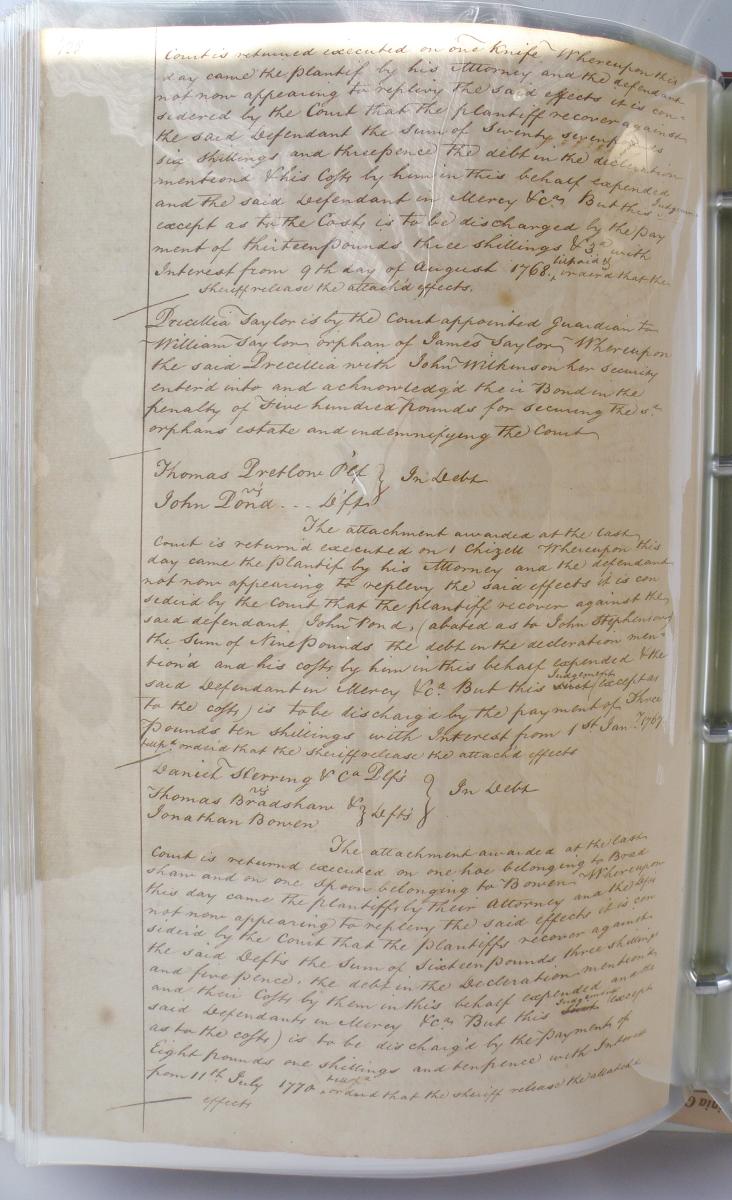 138
Court is returned executed on one Knife Whereupon this
day came the Plantif by his Attorney and the defendant
not now appearing to replevy the said effects it is con-
sidered by the Court that the plantiff recover against
the said Defendant the Sum of Twenty seven pounds
six shillings and threepence the debt in the decleration
mentiond & his Costs by him in this behalf expended
and the said Defendant in Mercy &ca But this Judgemt
except as to the Costs is to be discharged by the pay
ment of thirteen pounds three shillings & 3d with
Interest from 9th day of August 1768. till paid & orderd that the
sheriff release the attach'd effects.
Precillia Taylor is by the Court appointed Guardian to
William Taylor orphan of James Taylor Whereupon
the said Precillia with John Wilkinson her security
enterd into and acknowledg'd their Bond in the
penalty of Five hundred Pounds for securing the sd
orphans estate and indemnifying the Court
Thomas Pretlow Plt } In Debt
vs
John Pond ... Dft
The attachment awarded at the last
Court is return'd executed on 1 Chizell Whereupon this
day came the Plantif by his Attorney and the defendant
not now appearing to replevy the said effects it is con
siderd by the Court that the plantiff recover against the
said defendant John Pond, (abated as to John Stephenson)
the Sum of Nine Pounds the debt in the decleration men-
tion'd and his costs by him in this behalf expended & the
said Defendant in Mercy &ca But this Judgement (except as
to the costs) is to be discharg'd by the payment of Three
Pounds ten shillings with Interest from 1st Jany 1767
till pd orderd that the sheriff release the attach'd effects
Daniel Herring & Ca Plfs } In Debt
vs
Thomas Bradshaw & } Defts
Jonathan Bowen
The attachment awarded at the last
Court is returnd executed on one hoe belonging to Brad
shaw and on one Spoon belonging to Bowen Whereupon
this day came the plantiffs by their Attorney and the Defts
not now appearing to replevy the said effects it is con
siderd by the Court that the Plantiffs recover against
the said Defts the Sum of Sixteen pounds, three shillings
and five pence, the debt in the Decleration mentiond
and their Costs by them in this behalf expended and the
said Defendants in Mercy &ca But this Judgement (except
as to the costs) is to be discharg'd by the Payment of
Eight pounds one shillings and tenpence with Interest
from 11th July 1770 till pd orderd that the sheriff release the attachd
effects